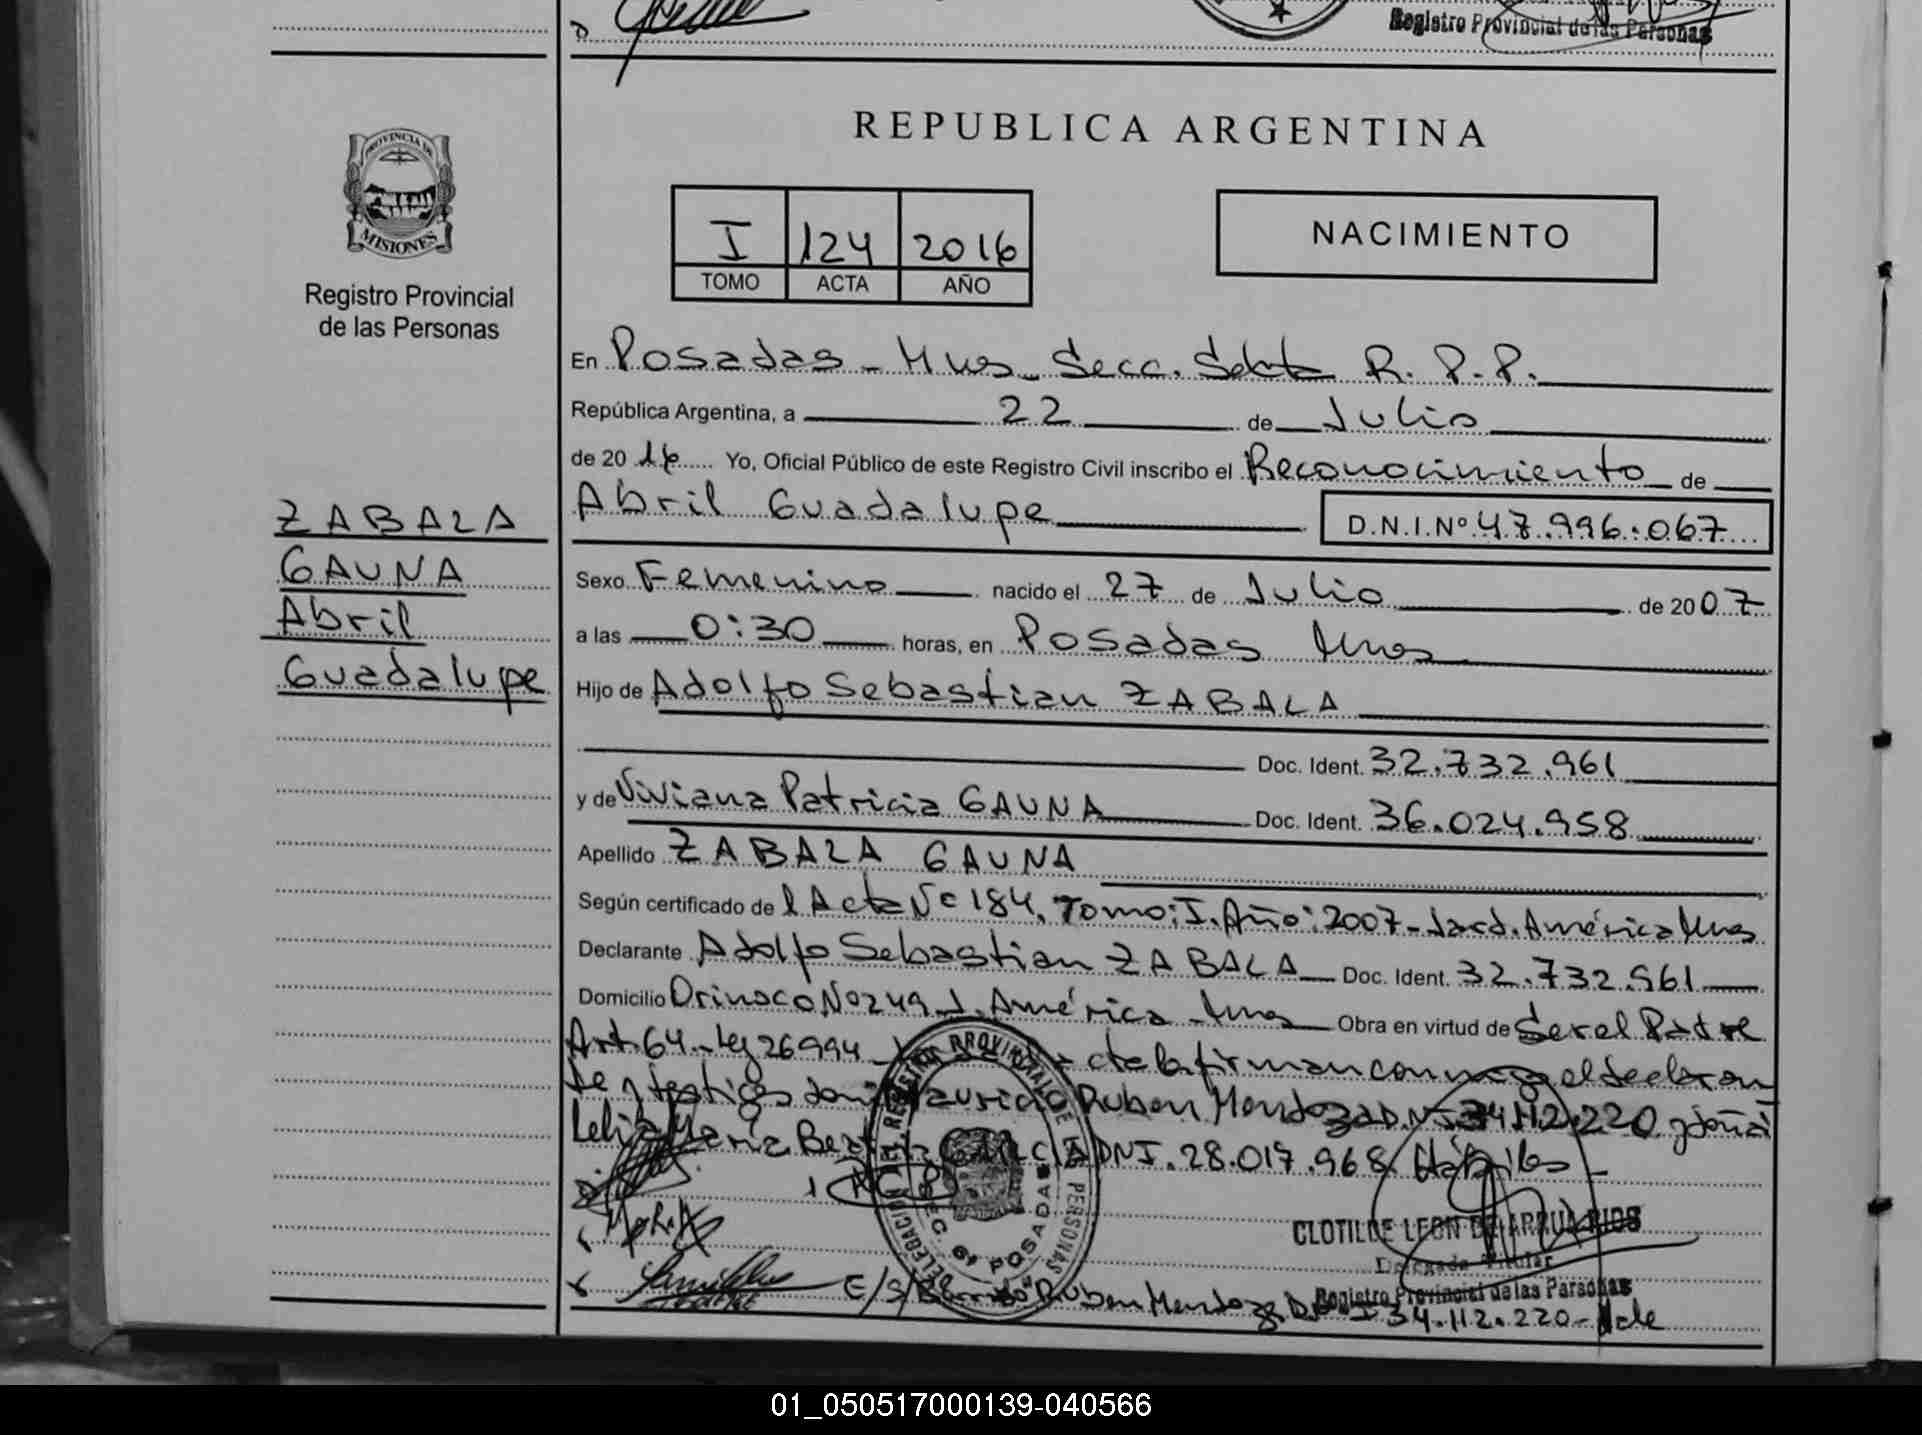 Registro Provincial de las Personas
REPUBLICA ARGENTINA
PROVINCIA DE
MISIONES
Registro Provincial
de las Personas
I 124 2016
TOMO ACTA AÑO
NACIMIENTO
En Posadas - Mnes - Secc. Sexta R.P.P.
República Argentina, a 22 de Julio
de 20 16 Yo, Oficial Público de este Registro Civil inscribo el Reconocimiento de
Abril Guadalupe D.N.I.Nº 47.996.067
ZABALA
GAUNA
Abril
Guadalupe
Sexo Femenino nacido el 27 de Julio de 20 07
a las 0:30 horas, en Posadas Mnes
Hijo de Adolfo Sebastian ZABALA
Doc. Ident. 32.732.961
y de Viviana Patricia GAUNA Doc. Ident. 36.024.958
Apellido ZABALA GAUNA
Según certificado de l Acta Nº 184, Tomo: I. Año: 2007 - Jard. América Mnes
Declarante Adolfo Sebastian ZABALA Doc. Ident. 32.732.961
Domicilio Orinoco Nº 249 J. América - Mnes Obra en virtud de Ser el Padre
Art. 64 - Ley 26994 - cta la firman conmigo el declaran
te y testigos don Mauricio Ruben Mendoza D.N.I. 34.112.220 y doña
Lelia María Beatriz GARCIA DNI. 28.017.968 Hábiles -
REGISTRO PROVINCIAL DE LAS PERSONAS
DELEGACION SEC. 6ª POSADAS
CLOTILDE LEON DE ARRUA RIOS
Delegada Titular
Registro Provincial de las Personas
E/S/B Ruben Mendoza D.N.I 34.112.220 - Vale
01_050517000139-040566